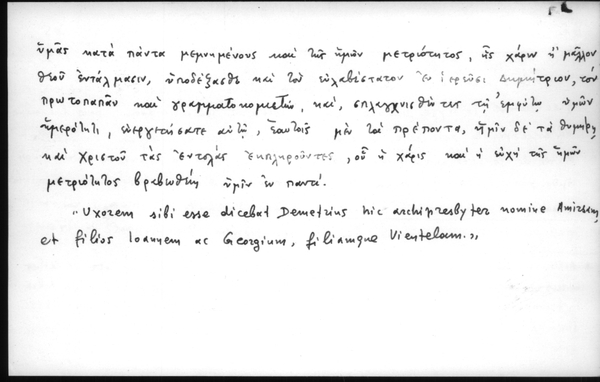 ὑμᾶς κατὰ πάντα μεμνημένους καὶ τῆς ἡμῶν μετριότητος, ἧς χάριν ἢ μᾶλλον
θεοῦ ἐντάλμασιν, ὑποδέξασθε καὶ τὸν εὐλαβέστατον ἐν ἱερεῦσι Δημήτριον, τὸν
πρωτοπαπᾶν καὶ γραμματοκομιστὴν, καὶ, σπλαγχνισθέντες τῇ ἐμφύτῳ ὑμῶν
ἡμερότητι, εὐεργετήσατε αὐτῷ, ἑαυτοῖς μὲν τὰ πρέποντα, ἡμῖν δὲ τὰ
καὶ Χριστοῦ τὰς ἐντολὰς ἐκπληροῦντες, οὗ ἡ χάρις καὶ ἡ εὐχὴ τῆς ἡμῶν
μετριότητος βραβωθείη ὑμῖν ἐν παντί.
"Uxorem sibi esse dicebat Demetrius hic archipresbyter nomine
et filios Ioannem ac Georgium, filiamque Vientelam.,,